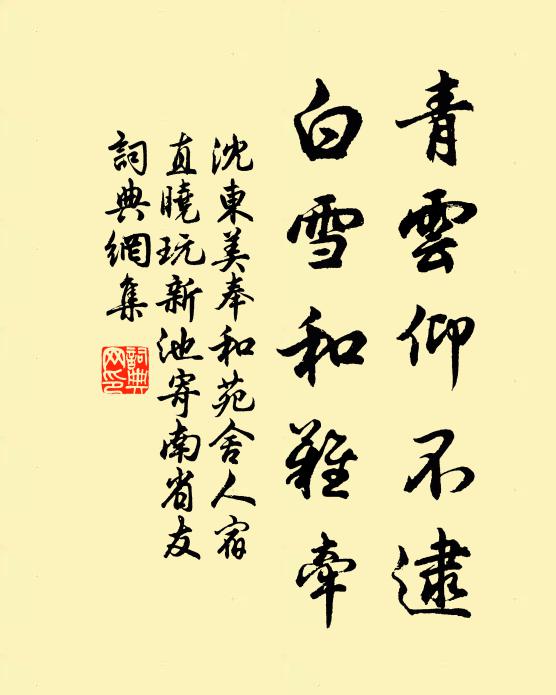 青雲仰不逮
白雪和難牽
沈東美奉和苑舍人宿
直曉玩新池寄南省友
詞典網集
詞典
网印